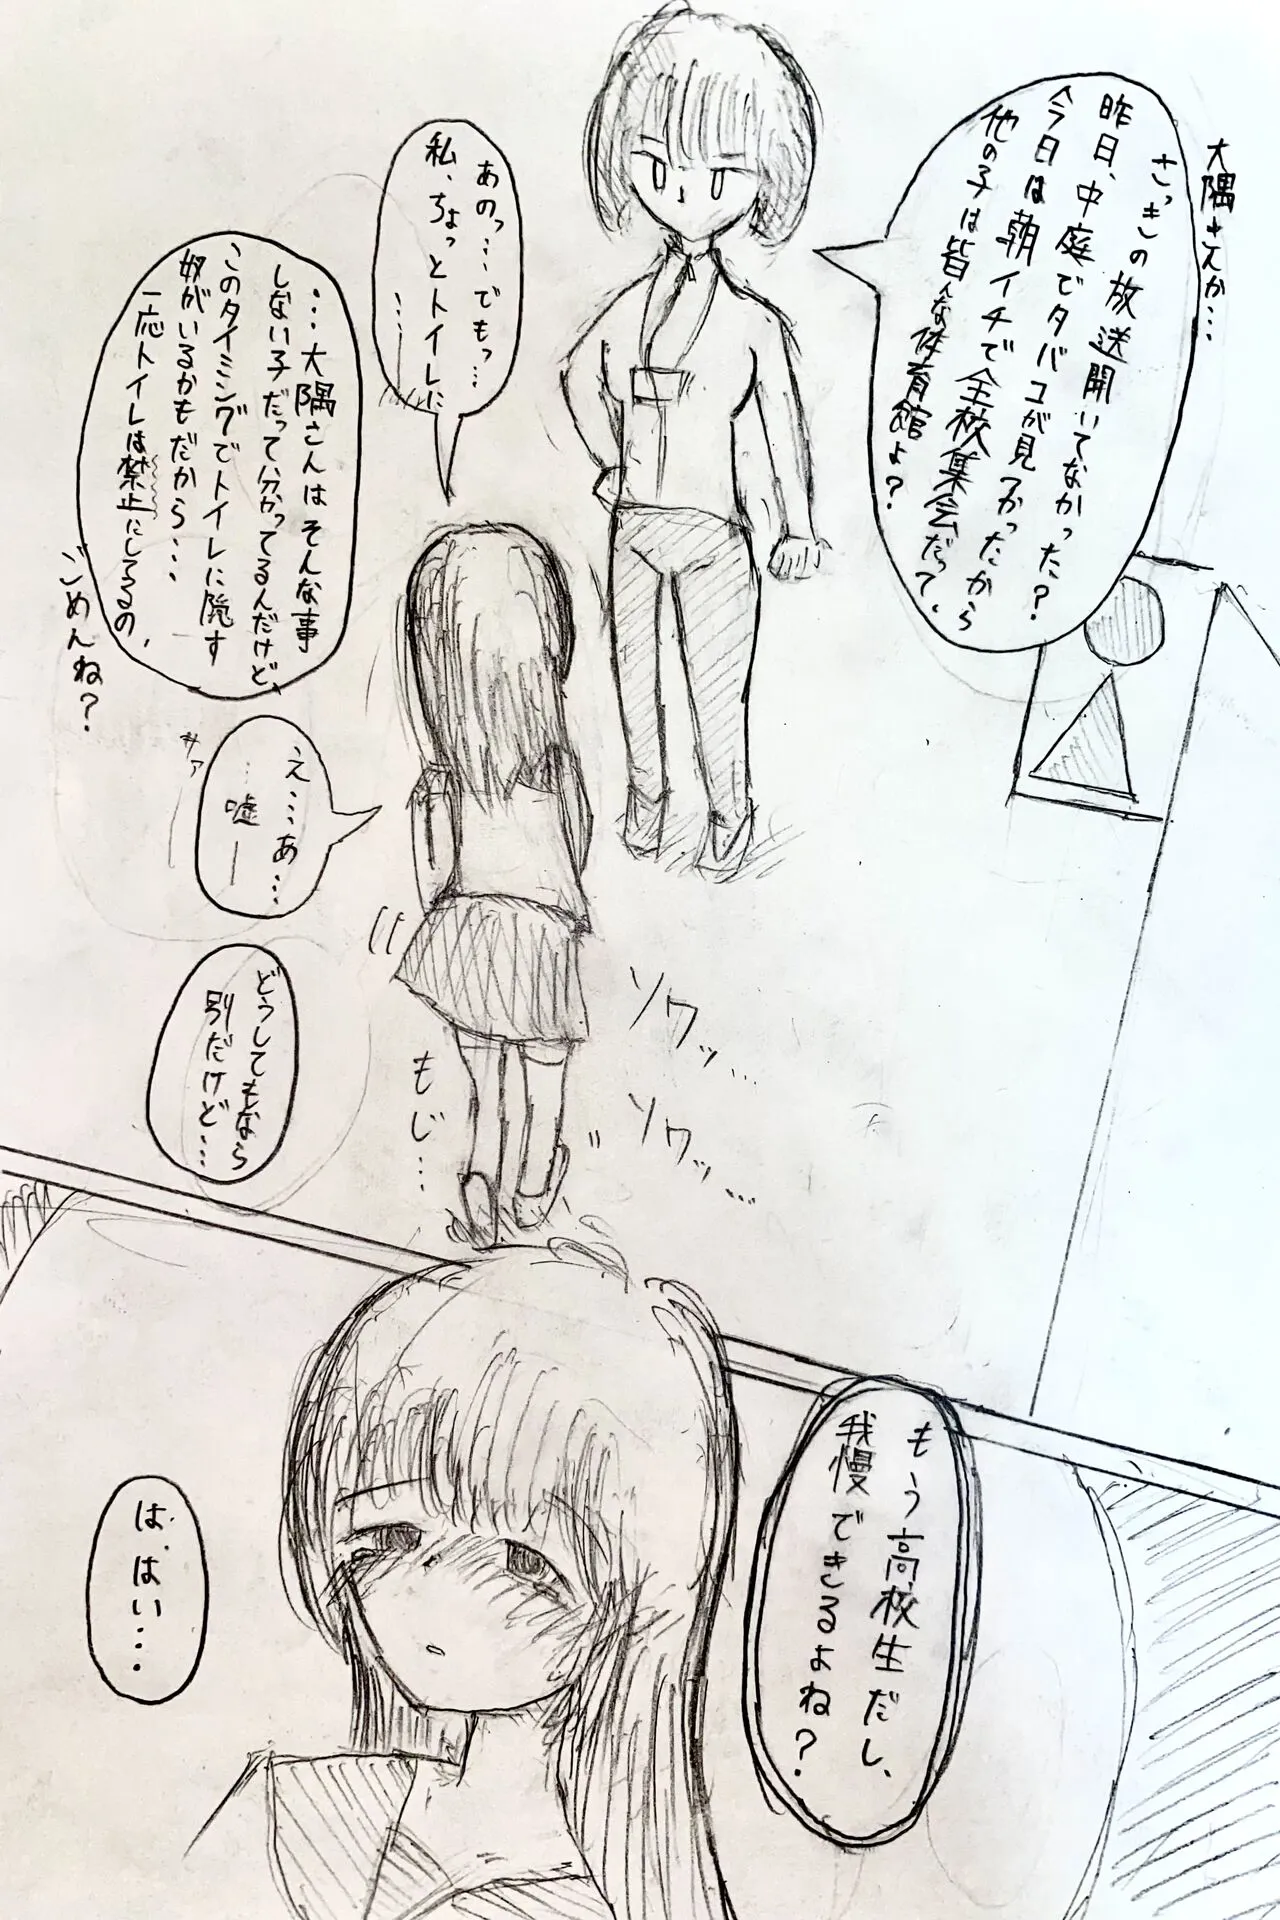 大隅さんか…
さっきの放送聞いてなかった？
昨日、中庭でタバコが見つかったから
今日は朝イチで全校集会だって、
他の子は皆んな体育館よ？
あのっ…でもっ…
私、ちょっとトイレに
……
…大隅さんはそんな事
しない子だって分かってるんだけど、
このタイミングでトイレに隠す
奴がいるかもだから…
一応トイレは禁止にしてるの、
ゴめんね？
え…あ…
…嘘ー
サァ
どうしてもなら
別だけど…
もじ…
ソワッ…
ソワッ…
もう高校生だし、
我慢できるよね？
は、はい…